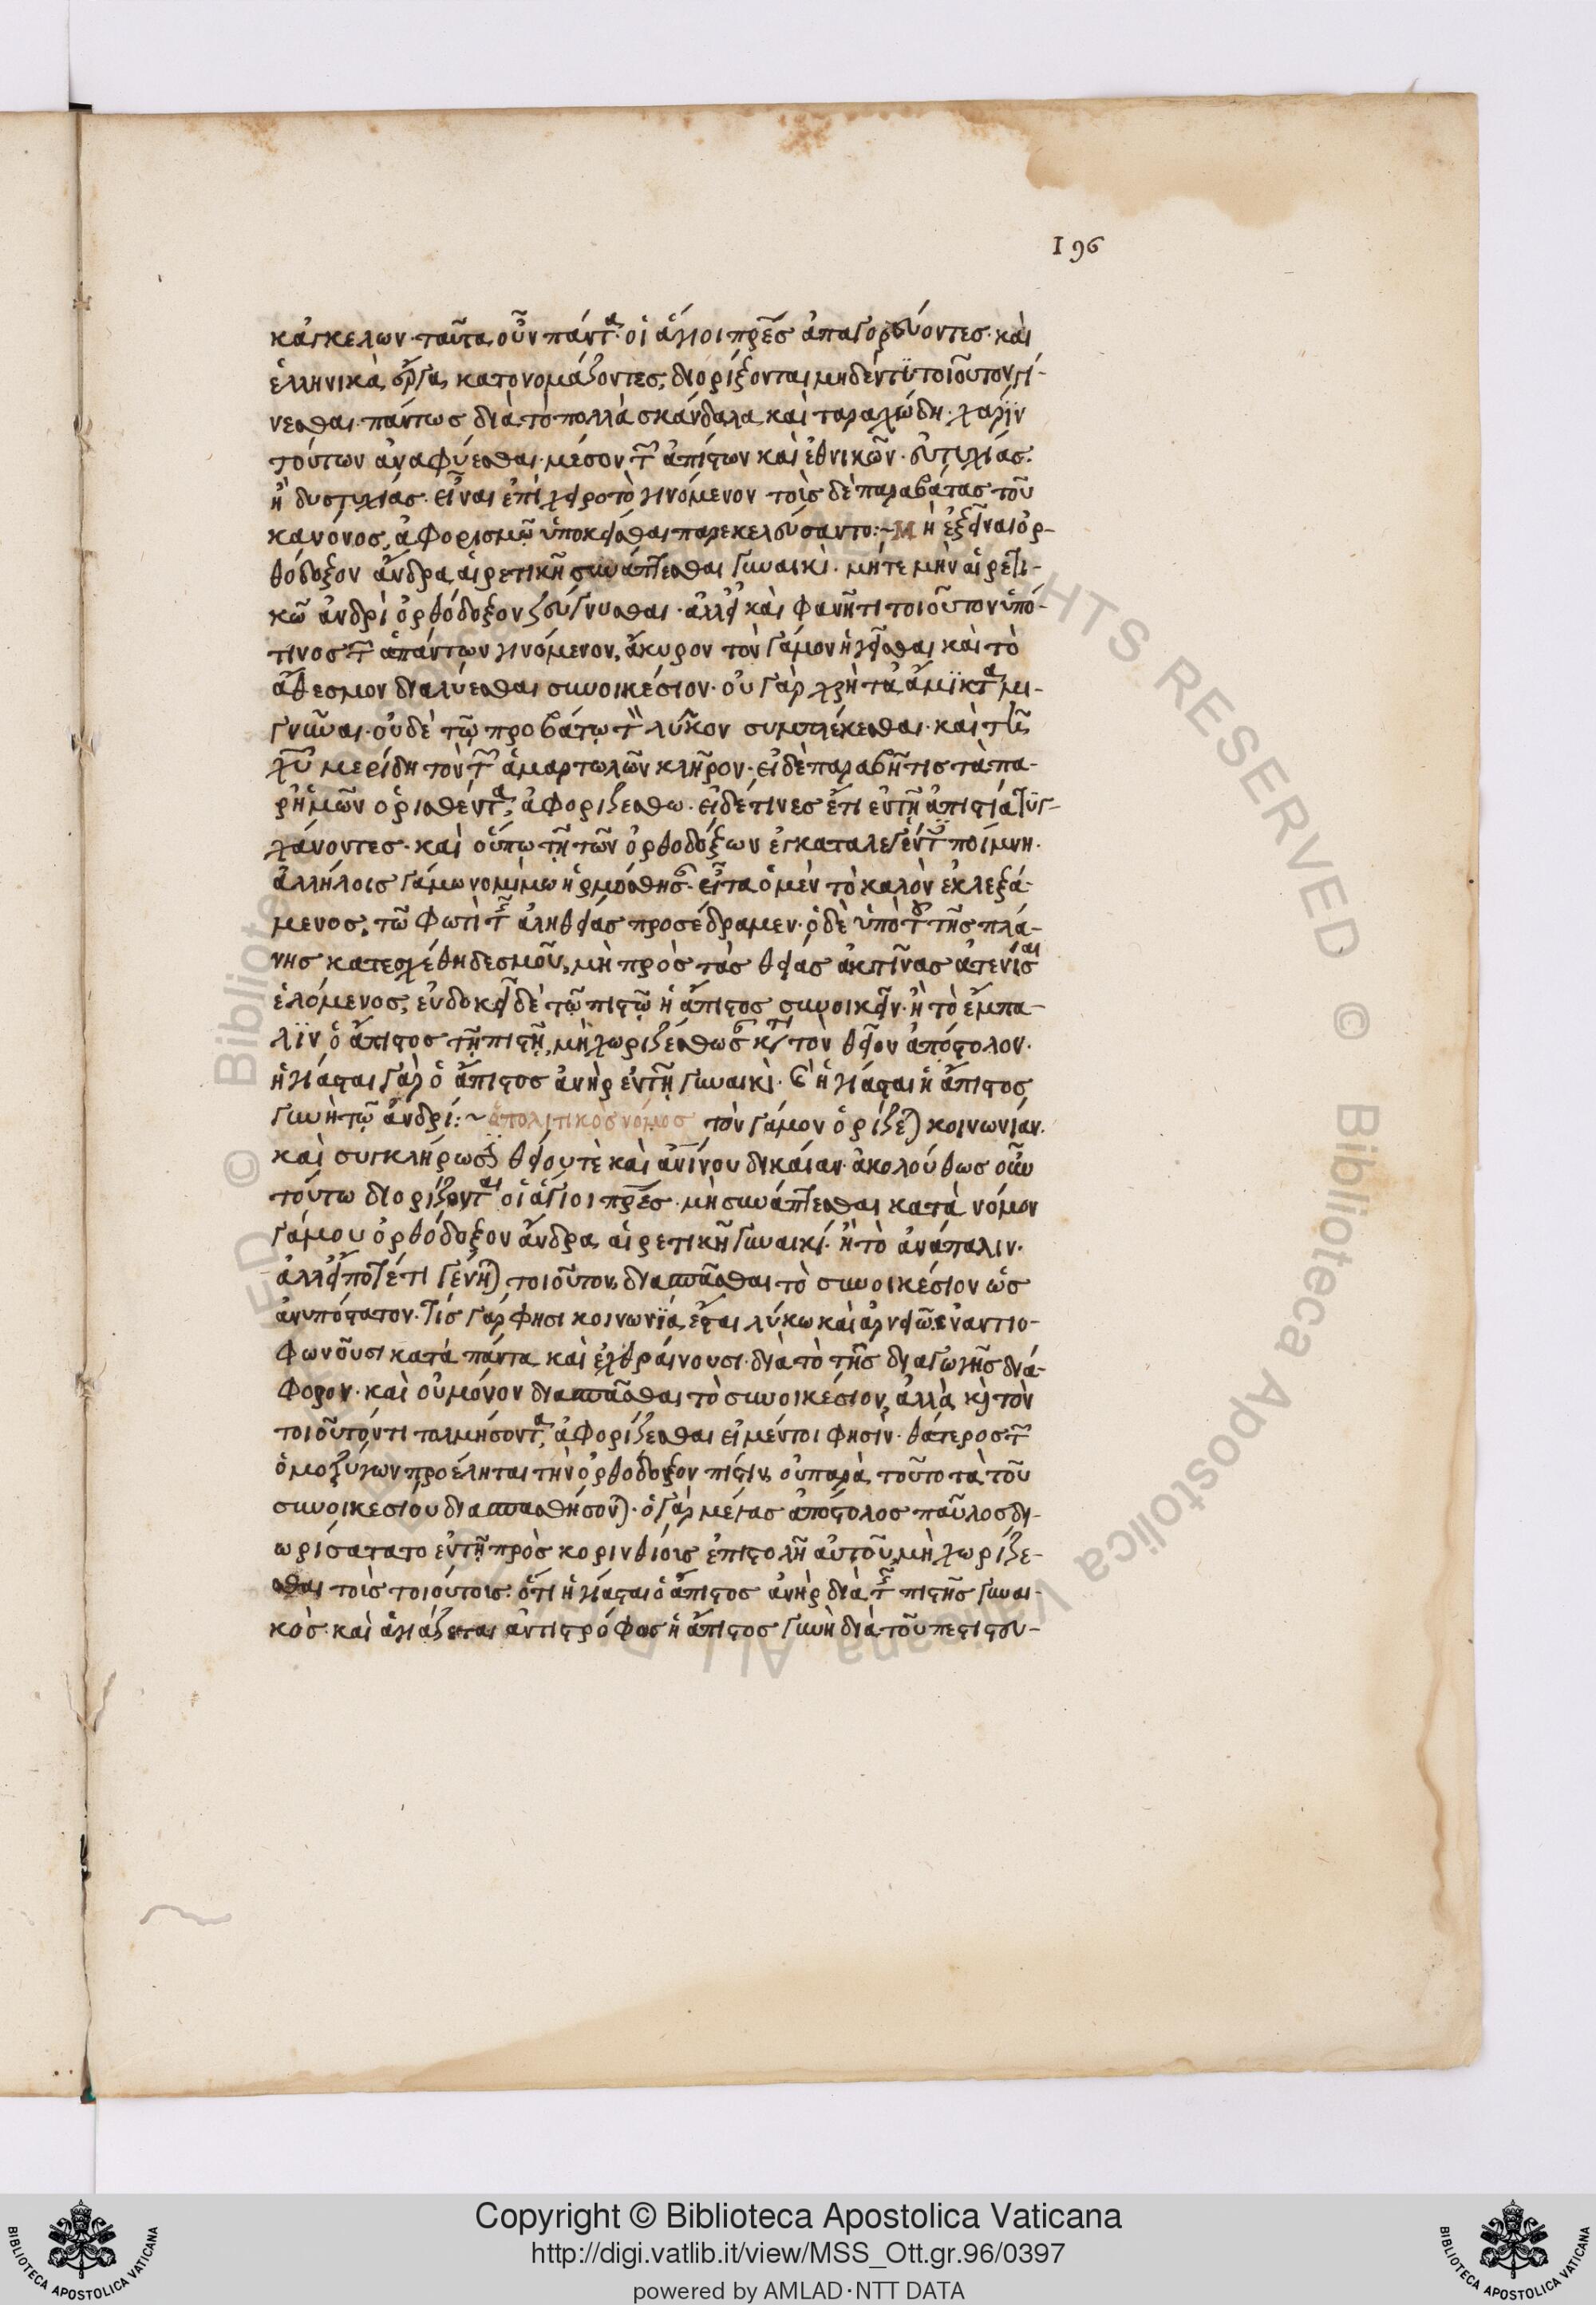 196
καγκελων· ταῦτα οὖν πάντα· οἱ ἅγιοι πρες ἀπαγορεύοντες· καὶ
ἑλληνικὰ ἔργα κατονομάζοντες, διορίζονται μηδέν τι τοιοῦτον γί-
νεσθαι πάντως διὰ τὸ πολλὰ σκάνδαλα καὶ ταραχώδη· χάριν
τούτων ἀναφύεσθαι· μέσον τῶν ἀπίστων καὶ ἐθνικῶν· εὐτυχίας·
ἢ δυστυχίας· εἶναι ἐπὶ χεῖρο τὸ γινόμενον τοὺς δὲ παραβάτας τοῦ
κανόνος, ἀφορισμῶ ὑποκεῖσθαι παρεκελεύσαντο:~ Μὴ ἐξεῖναι ὀρ-
θόδοξον ἄνδρα αἱρετικῆ συνάπτεσθαι γυναικὶ· μήτε μὴν αἱρετι-
κῶ ἀνδρὶ ὀρθόδοξον ζεύγνυσθαι· ἀλλ' εἰ καὶ φανῆ τι τοιοῦτον ὑπό
τινος τῶν ἁπάντων γινόμενον, ἄκυρον τὸν γάμον ἡγεῖσθαι καὶ τὸ
ἄθεσμον διαλύεσθαι συνοικέσιον· οὐ γὰρ χρὴ τὰ ἄμϊκτα μι-
γνῦναι· οὐδὲ τῶ προβάτω τὸν λύκον συμπλέκεσθαι· καὶ τῆ
χῦ μερίδη τὸν τῶν ἁμαρτωλῶν κλῆρον· εἰ δὲ παραβῆ τις τὰ πα-
ρ' ἡμῶν ὁρισθέντα, ἀφοριζέσθω· εἰ δέ τινες ἔτι ἐν τῆ ἀπιστία τυγ-
χάνοντες· καὶ οὔπω τῆ τῶν ὀρθοδόξων ἐγκαταλεγέντες ποίμνη·
ἀλλήλοις γάμω νομίμω ἡρμόσθησαν· εἶτα ὁ μὲν τὸ καλὸν ἐκλεξά-
μενος, τῶ φωτὶ τῆς ἀληθείας προσέδραμεν· ὁ δὲ ὑπὸ τοῦ τῆς πλά-
νης κατεσχέθη δεσμοῦ, μὴ πρὸς τὰς θείας ἀκτῖνας ἀτενίσαι
ἑλόμενος, εὐδοκεῖ δὲ τῶ πιστῶ ἡ ἄπιστος συνοικεῖν· ἢ τὸ ἔμπα-
λϊν ὁ ἄπιστος τῆ πιστῆ, μὴ χωριζέσθωσαν κατὰ τὸν θεῖον ἀπόστολον·
ἡγίασται γὰρ ὁ ἄπιστος ἀνὴρ ἐν τῆ γυναικὶ· καὶ ἡγίασται ἡ ἄπιστος
γυνὴ τῶ ἀνδρί:~ ὁ πολιτικὸς νόμος τὸν γάμον ὁρίζεται κοινωνίαν·
καὶ συγκλήρωσιν θείου τὲ καὶ ἀνίνου δικαίαν· ἀκολούθως οὖν
τούτω διορίζονται οἱ ἅγιοι πρες· μὴ συνάπτεσθαι κατὰ νόμον
γάμου ὀρθόδοξον ἄνδρα αἱρετικῆ γυναικί· ἢ τὸ ἀνάπαλιν·
ἀλλ' εἴποτέ τι γένηται τοιοῦτον, διασπᾶσθαι τὸ συνοικέσιον ὡς
ἀνυπόστατον· τίς γάρ φησι κοινωνΐα ἔσται λύκω καὶ ἀρνείω· ἐναντιο-
φωνοῦσι κατὰ πάντα καὶ ἐχθραίνουσι· διὰ τὸ τῆς διαγωγῆς διά-
φορον· καὶ οὐ μόνον διασπᾶσθαι τὸ συνοικέσιον, ἀλλὰ καὶ τὸν
τοιοῦτόν τι τολμήσοντα, ἀφορίζεσθαι εἰ μέντοι φησὶν· θάτερος τῶν
ὁμοζύγων προέληται τὴν ὀρθόδοξον πίστιν, οὐ παρὰ τοῦτο τὰ τοῦ
συνοικεσίου διασπασθήσονται· ὁ γὰρ μέγας ἀπόστολος παῦλος δι-
ωρίσατατο ἐν τῆ πρὸς κορινθίοις ἐπιστολῆ αὐτοῦ, μὴ χωρίζε-
σθαι τοὺς τοιούτοις· ὅτι ἡγίασται ὁ ἄπιστος ἀνὴρ διὰ τῆς πιστῆς γυναι-
κὸς· καὶ ἁγιάζεται ἀντιστρόφως ἡ ἄπιστος γυνὴ διὰ τοῦ πεπιστευ-
Copyright © Biblioteca Apostolica Vaticana
http://digi.vatlib.it/view/MSS_Ott.gr.96/0397
powered by AMLAD·NTT DATA
BIBLIOTECA APOSTOLICA VATICANA
BIBLIOTECA APOSTOLICA VATICANA